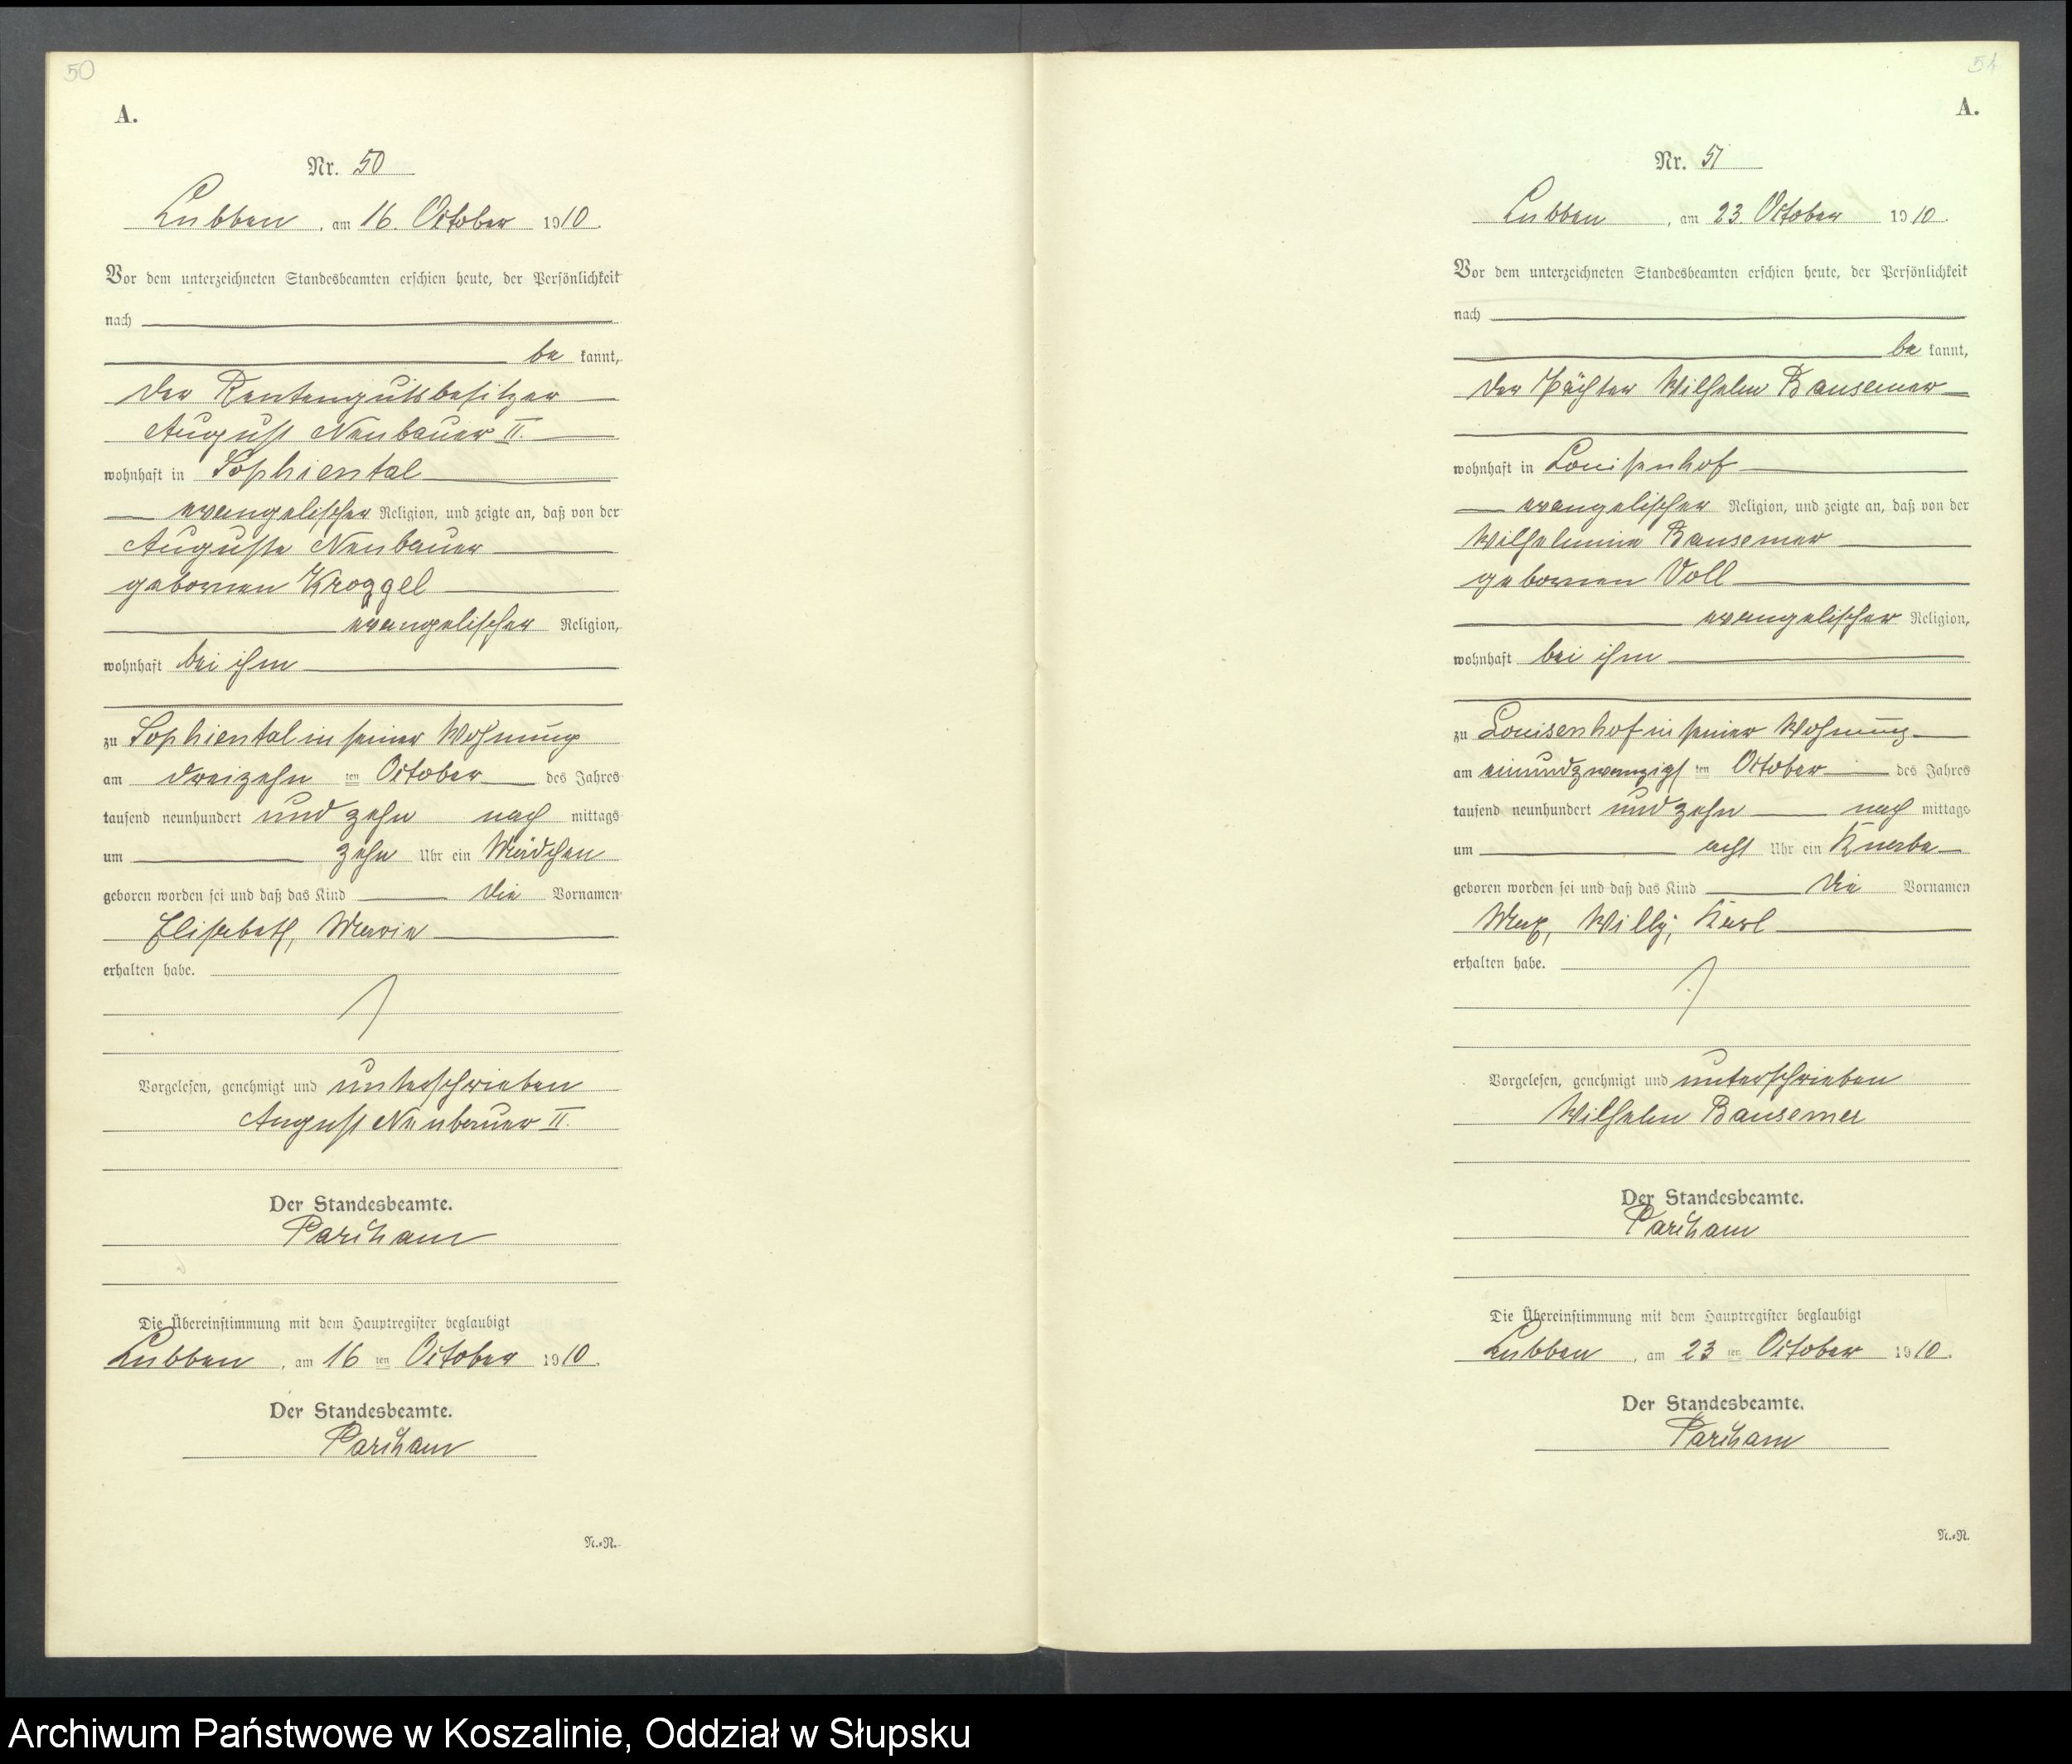 50
A.
Nr. 50
Lubben, am 16. October 1910.
Vor dem unterzeichneten Standesbeamten erschien heute, der Persönlichkeit
nach
be kannt,
der Rentengutsbesitzer
August Neubauer II.
wohnhaft in Sophiental
evangelischer Religion, und zeigte an, daß von der
Auguste Neubauer
gebornen Kroggel
evangelischer Religion,
wohnhaft bei ihm
zu Sophiental in seiner Wohnung
am dreizehn ten October des Jahres
tausend neunhundert und zehn nach mittags
um zehn Uhr ein Mädchen
geboren worden sei und daß das Kind die Vornamen
Elisabeth, Marie
erhalten habe.
Vorgelesen, genehmigt und unterschrieben
August Neubauer II.
Der Standesbeamte.
Der Übereinstimmung mit dem Hauptregister beglaubigt
Lubben, am 16 ten October 1910.
Der Standesbeamte.
N.=R.
51
A.
Nr. 51
Lubben, am 23. October 1910.
Vor dem unterzeichneten Standesbeamten erschien heute, der Persönlichkeit
nach
be kannt,
der Pächter Wilhelm Bansemer
wohnhaft in Louisenhof
evangelischer Religion, und zeigte an, daß von der
Wilhelmine Bansemer
gebornen Voll
evangelischer Religion,
wohnhaft bei ihm
zu Louisenhof in seiner Wohnung
am einundzwanzigs ten October des Jahres
tausend neunhundert und zehn nach mittags
um acht Uhr ein Knabe
geboren worden sei und daß das Kind die Vornamen
Max, Willy, Karl
erhalten habe.
Vorgelesen, genehmigt und unterschrieben
Wilhelm Bansemer
Der Standesbeamte.
Die Übereinstimmung mit dem Hauptregister beglaubigt
Lubben, am 23 ten October 1910.
Der Standesbeamte.
N.=R.
Archiwum Państwowe w Koszalinie, Oddział w Słupsku